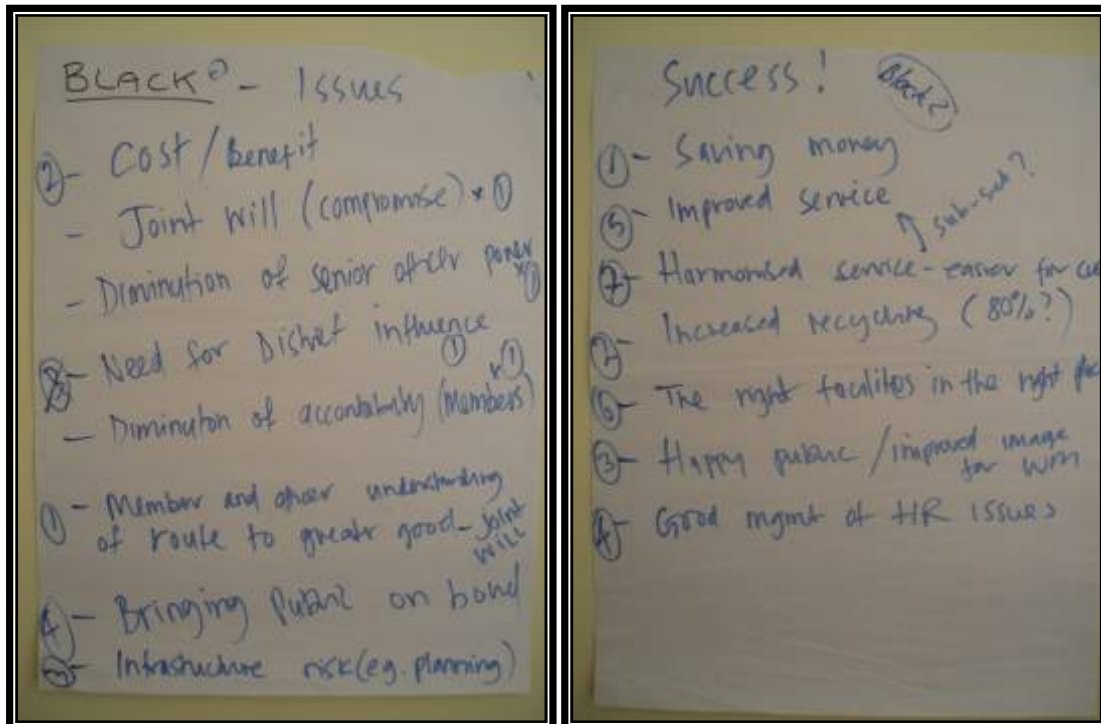 BLACK ② - Issues
② - Cost / Benefit
- Joint Will (compromise) * ①
- Diminution of senior officer power
*①
- Need for District influence
① * ①
- Diminution of accountability (members)
① - Member and officer understanding
of route to greater good - joint
will
④ - Bringing public on board
- Infrastructure risk (eg. planning)
Success! Black 2
① - Saving money
⑤ - Improved service
sub-set?
⑦ - Harmonised service - easier for cu
② - Increased recycling (80%?)
⑥ - The right facilites in the right
③ - Happy public / improved image
for WM
④ - Good mgmt of HR issues